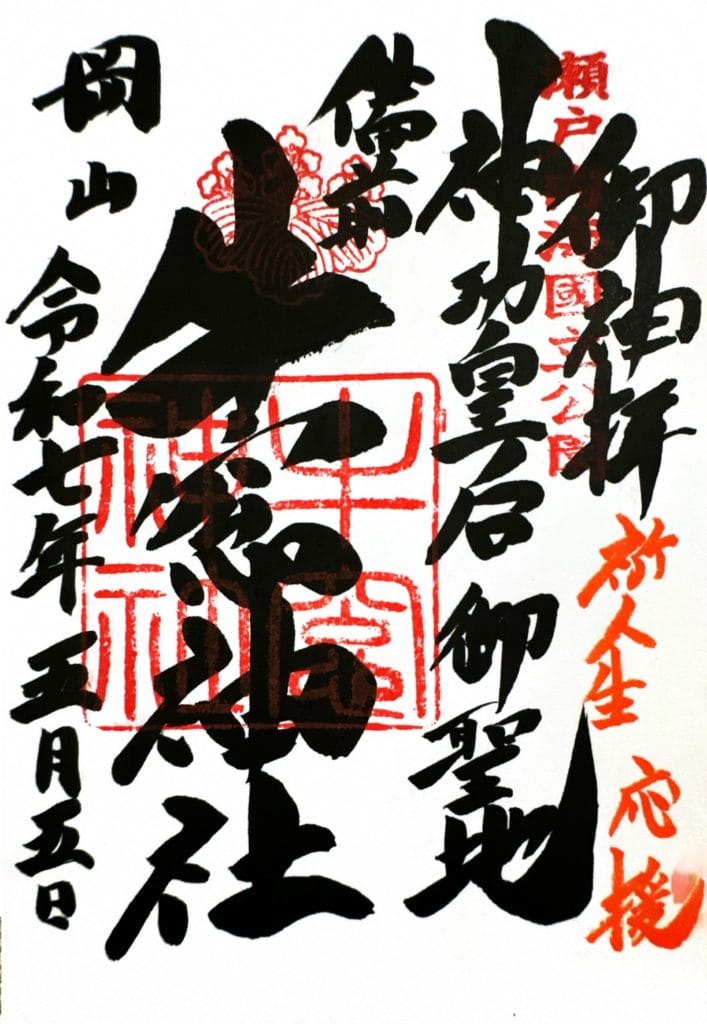 御神拝
祈人生 応援
瀬戸内海國立公園
神功皇后 御聖地
備前
牛窓神社
牛窓神社
岡山
令和七年五月五日